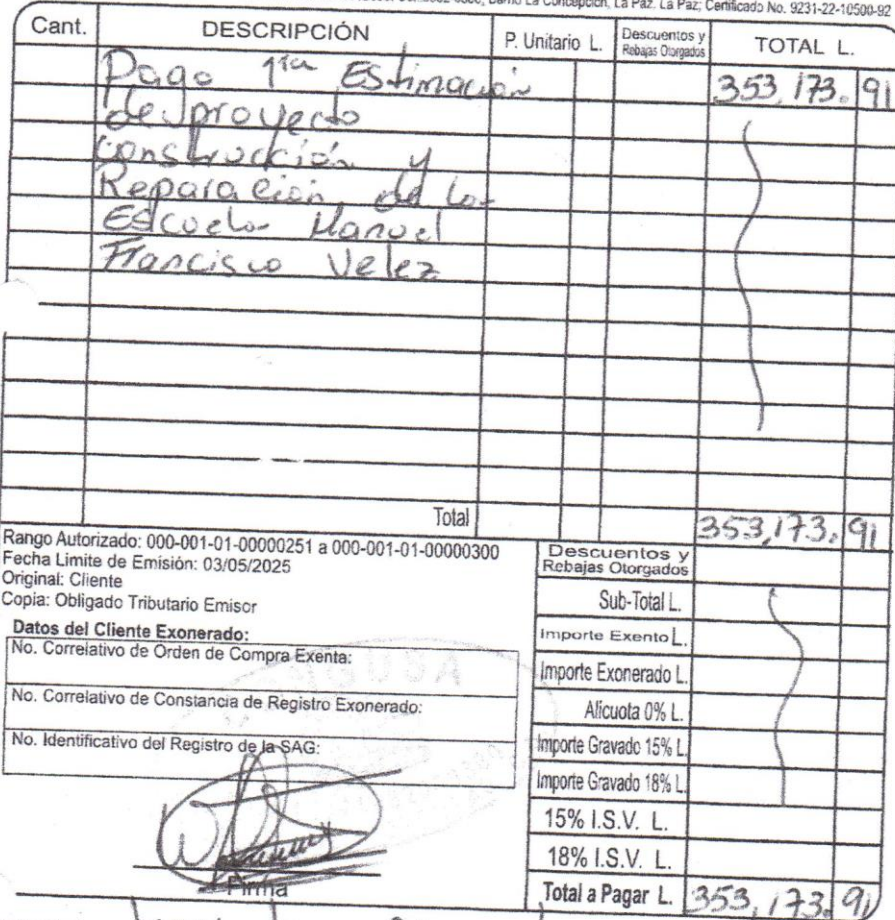 Barrio La Concepción, La Paz. La Paz; Certificado No. 9231-22-10500-92
Cant. DESCRIPCIÓN P. Unitario L. Descuentos y Rebajas Otorgados TOTAL L.
Pago 1ra Estimación 353,173.91
de proyecto
construcción y
Reparación de la
Escuela Manuel
Francisco Velez
Total 353,173.91
Rango Autorizado: 000-001-01-00000251 a 000-001-01-00000300
Fecha Limite de Emisión: 03/05/2025
Original: Cliente
Copia: Obligado Tributario Emisor
Datos del Cliente Exonerado:
No. Correlativo de Orden de Compra Exenta:
No. Correlativo de Constancia de Registro Exonerado:
No. Identificativo del Registro de la SAG:
Firma
Descuentos y
Rebajas Otorgados
Sub-Total L.
Importe Exento L.
Importe Exonerado L.
Alicuota 0% L.
Importe Gravado 15% L.
Importe Gravado 18% L.
15% I.S.V. L.
18% I.S.V. L.
Total a Pagar L. 353,173.91